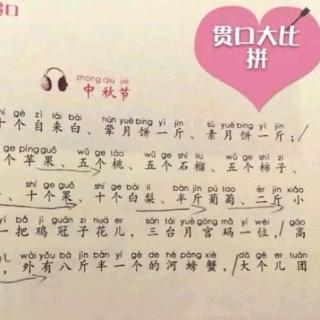 贯口
贯口大比
拼
zhōng qiū jié
中秋节
shí gè zì lái bái hūn yuè bing yì jīn sù yuè bing yì jīn
十个自来白、荤月饼一斤、素月饼一斤；
ge píng guǒ wǔ ge táo wǔ ge shí liu wǔ ge shì zi
个苹果、五个桃、五个石榴、五个柿子、
shí ge guǒ shí ge bái lí bàn jīn pú tao èr jīn xiǎo
、十个果、十个白梨、半斤葡萄、二斤小
yì bǎ jī guān zǐ huā er sān tái yuè gōng mǎ yí wèi gāo
一把鸡冠子花儿，三台月宫码一位，高
wài yǒu bā jīn bàn yí ge de hé páng xiè dà gè er tuán
，外有八斤半一个的河螃蟹，大个儿团